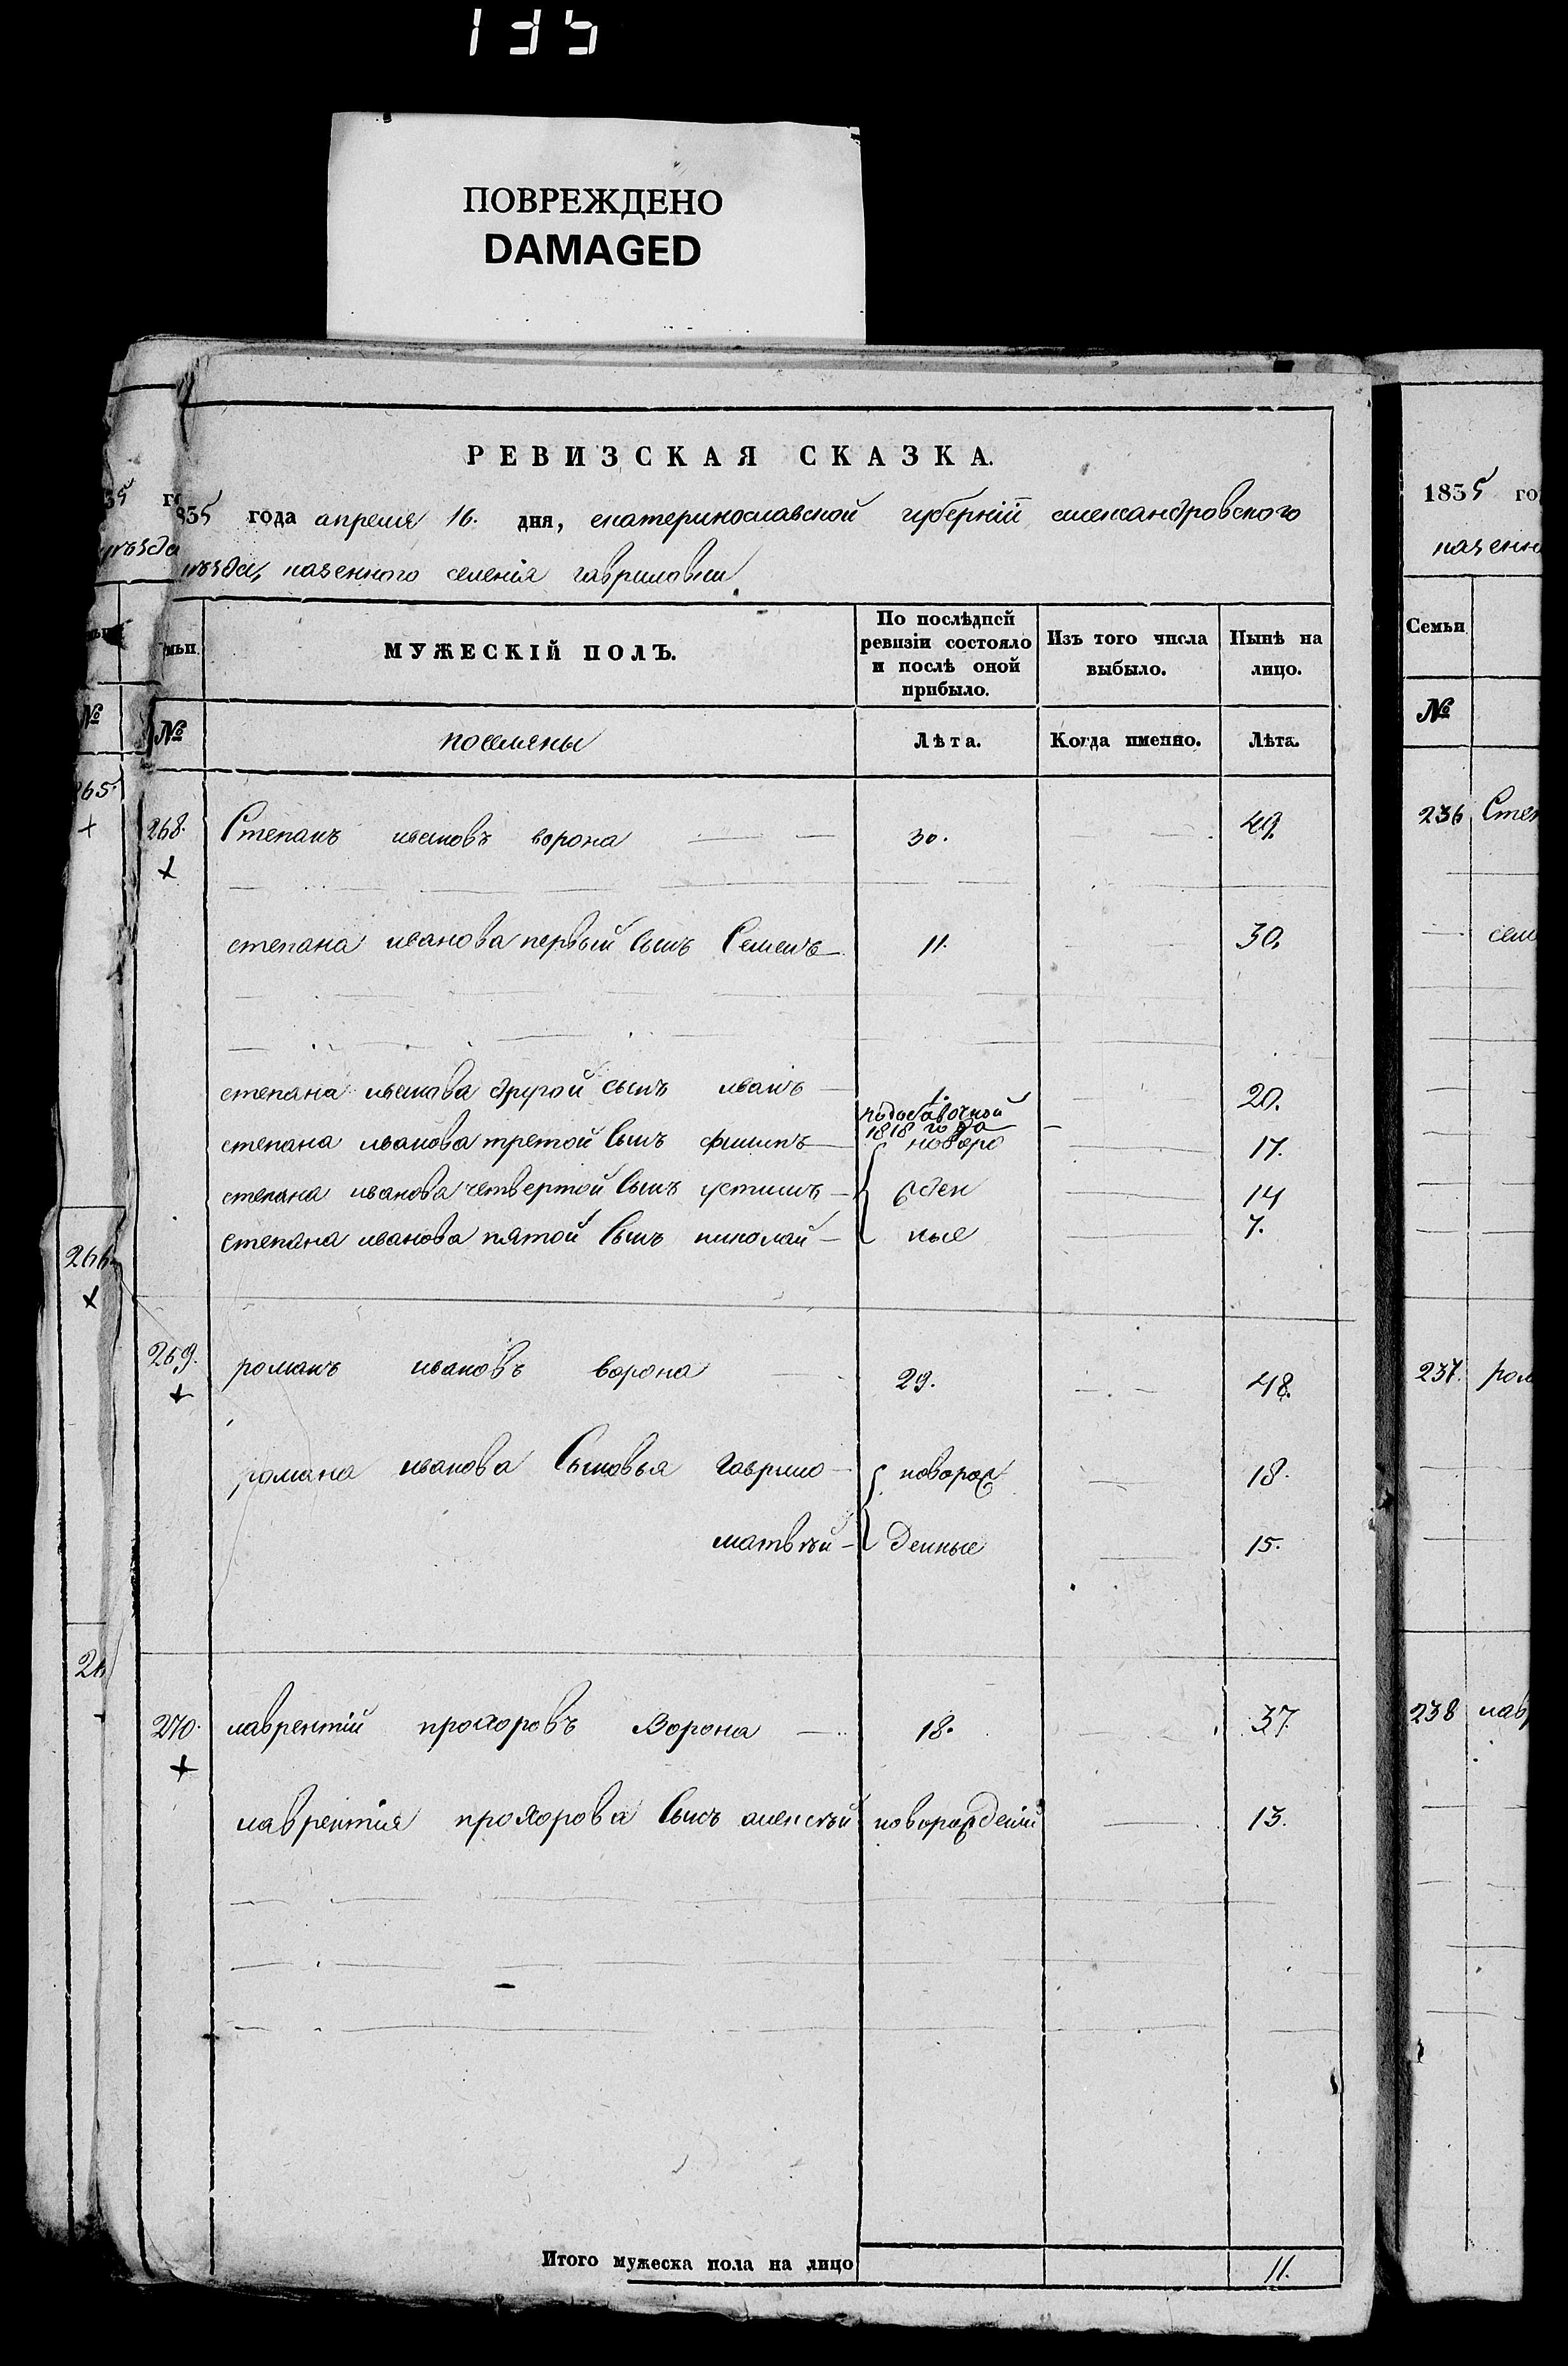 135
ПОВРЕЖДЕНО
DAMAGED
РЕВИЗСКАЯ СКАЗКА.
835 года апреля 16. дня, екатеринославской губерніи александровского
уѣзда, казенного селенія гавриловки
МУЖЕСКІЙ ПОЛЪ.
По послѣдней ревизіи состояло и послѣ оной прибыло.
Изъ того числа выбыло.
Нынѣ на лицо.
№ поселяны Лѣта. Когда именно. Лѣта.
268. Степанъ ивановъ ворона 30. 49.
степана иванова первый Сынъ Семенъ 11. 30.
степана иванова другой сынъ иванъ 1. 20.
подобавочной
1818 года
степана иванова третой Сынъ филипъ новоро 17.
степана иванова четвертой Сынъ устимъ жден 14
степана иванова пятой Сынъ николай ные 7.
269. романъ ивановъ ворона 29. 48.
романа иванова Сыновья гаврило новорож 18.
матвѣй денные 15.
270. лаврентій прохоровъ Ворона 18. 37.
лаврентія прохорова Сынъ алексѣй новорожденій 13.
Итого мужеска пола на лицо 11.
265.
266
1835 го
казенн
Семьи
№
236 Степ
семе
237. ром
238 лавр